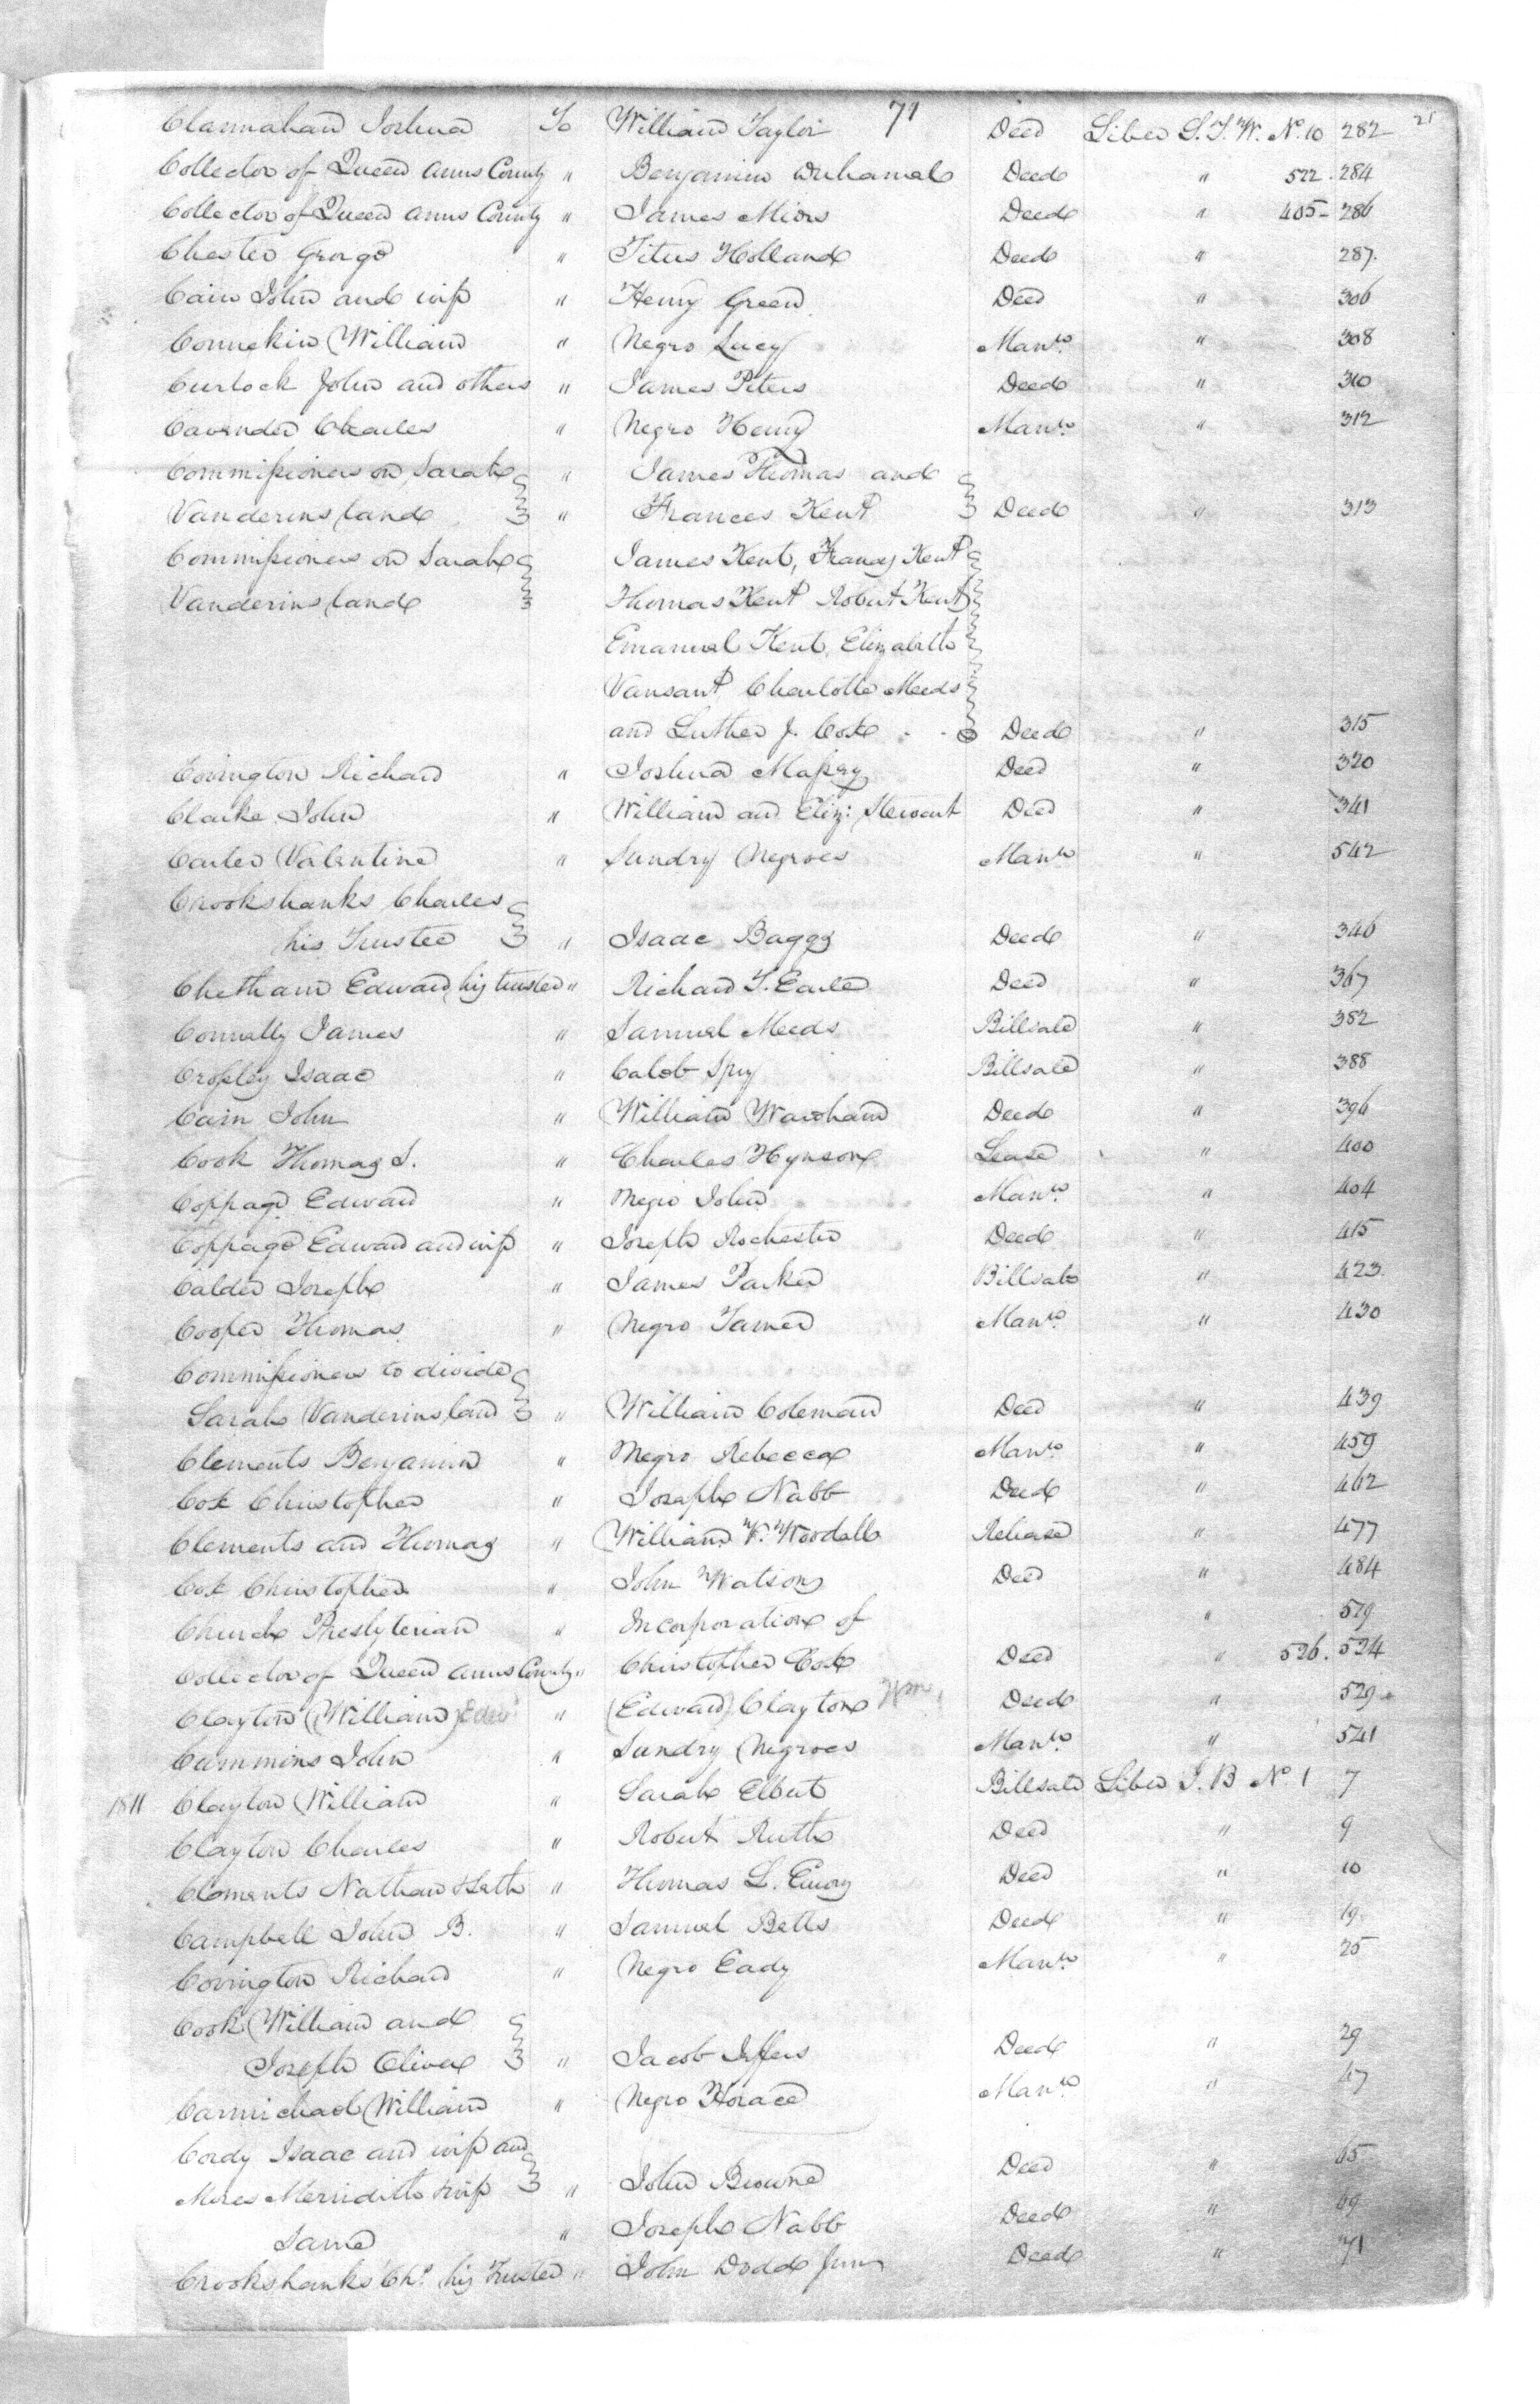 71
21
Clannahan Joshua To William Taylor Deed Liber S.T.W. No. 10 282
Collector of Queen Anns County " Benjamin Duhamel Deed " 522. 284
Collector of Queen Anns County " James Miers Deed " 405- 286
Chester George " Titus Holland Deed " 287.
Cain John and wife " Henry Green Deed " 306
Connekin William " Negro Lucy Mann. " 308
Curlock John and others " James Peters Deed " 310
Cavender Charles " Negro Henry Mann. " 312
Commissioners on Sarah " James Thomas and
Vanderins land " Frances Kent Deed " 313
Commissioners on Sarah James Kent, Francy Kent
Vanderins land Thomas Kent Robert Kent
Emanuel Kent, Elizabeth
Vansant Charlotte Meeds
and Luther J. Cox - - Deed " 315
Covington Richard " Joshua Massey Deed " 320
Clarke John " William and Eliz: Stewart Deed " 341
Carter Valentine " Sundry Negroes Mann " 542
Crookshanks Charles
his Trustee " Isaac Baggs Deed " 346
Chetham Edward, his trustee " Richard T. Earle Deed " 367
Connelly James " Samuel Meeds Billsale " 382
Cropley Isaac " Caleb Spry Billsale " 388
Cain John " William Wareham Deed " 396
Cook Thomas S. " Charles Hynson Lease " 400
Coppage Edward " Negro John Mann. " 404
Coppage Edward and wife " Joseph Rochester Deed " 415
Calder Joseph " James Parker Billsale " 423
Cooper Thomas " Negro James Mann. " 430
Commissioners to divide
Sarah Vanderins land " William Coleman Deed " 439
Clements Benjamin " Negro Rebecca Mann. " 459
Cox Christopher " Joseph Nabb Deed " 462
Clements and Thomas " William W. Woodall Release " 477
Cox Christopher " John Watson Deed " 484
Church Presbyterian " Incorporation of " 519
Collector of Queen Anns County " Christopher Cox Deed " 526. 524
Clayton (William) Edwd " (Edward) Clayton Wm. Deed " 529
Cummins John " Sundry Negroes Mann. " 541
1811 Clayton William " Sarah Elbert Billsale Liber J.B No 1 7
Clayton Charles " Robert Ruth Deed " 9
Clements Nathan " Thomas L. Emory Deed " 10
Campbell John B. " Samuel Betts Deed " 19.
Covington Richard " Negro Eady Mann. " 25
Cook William and
Joseph Oliver " Jacob Jeffers Deed " 29
Carmichael William " Negro Horace Mann. " 47
Cordy Isaac and wife and
Meredith & wife " John Browne Deed " 65
Same " Joseph Nabb Deed " 69
Crookshanks Chs. his Trustee " John Dodd Junr Deed " 71